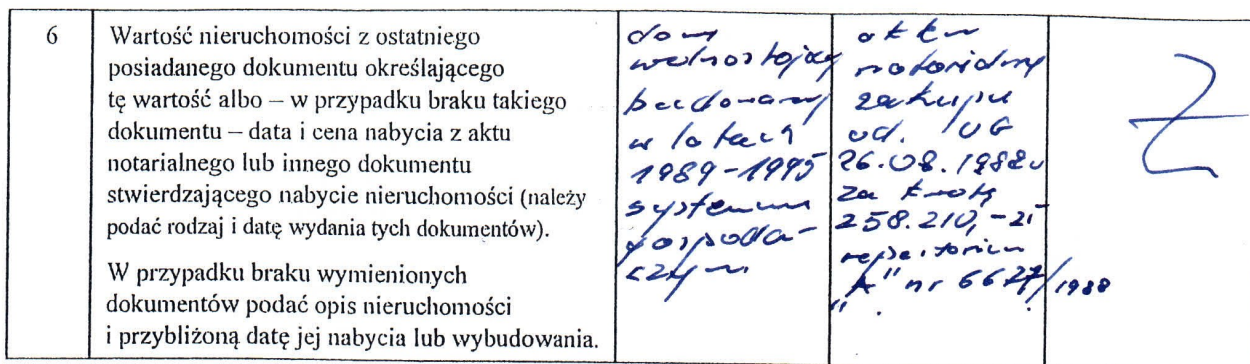 6
Wartość nieruchomości z ostatniego
posiadanego dokumentu określającego
tę wartość albo – w przypadku braku takiego
dokumentu – data i cena nabycia z aktu
notarialnego lub innego dokumentu
stwierdzającego nabycie nieruchomości (należy
podać rodzaj i datę wydania tych dokumentów).
W przypadku braku wymienionych
dokumentów podać opis nieruchomości
i przybliżoną datę jej nabycia lub wybudowania.
dom
wolnostojący
budowany
w latach
1989-1995
systemem
gospodar-
czym
notarialny
zakupu
od. UG
26.08.1988r
za kwotę
258.210,- zł
repertorium
"A" nr 6627/1988